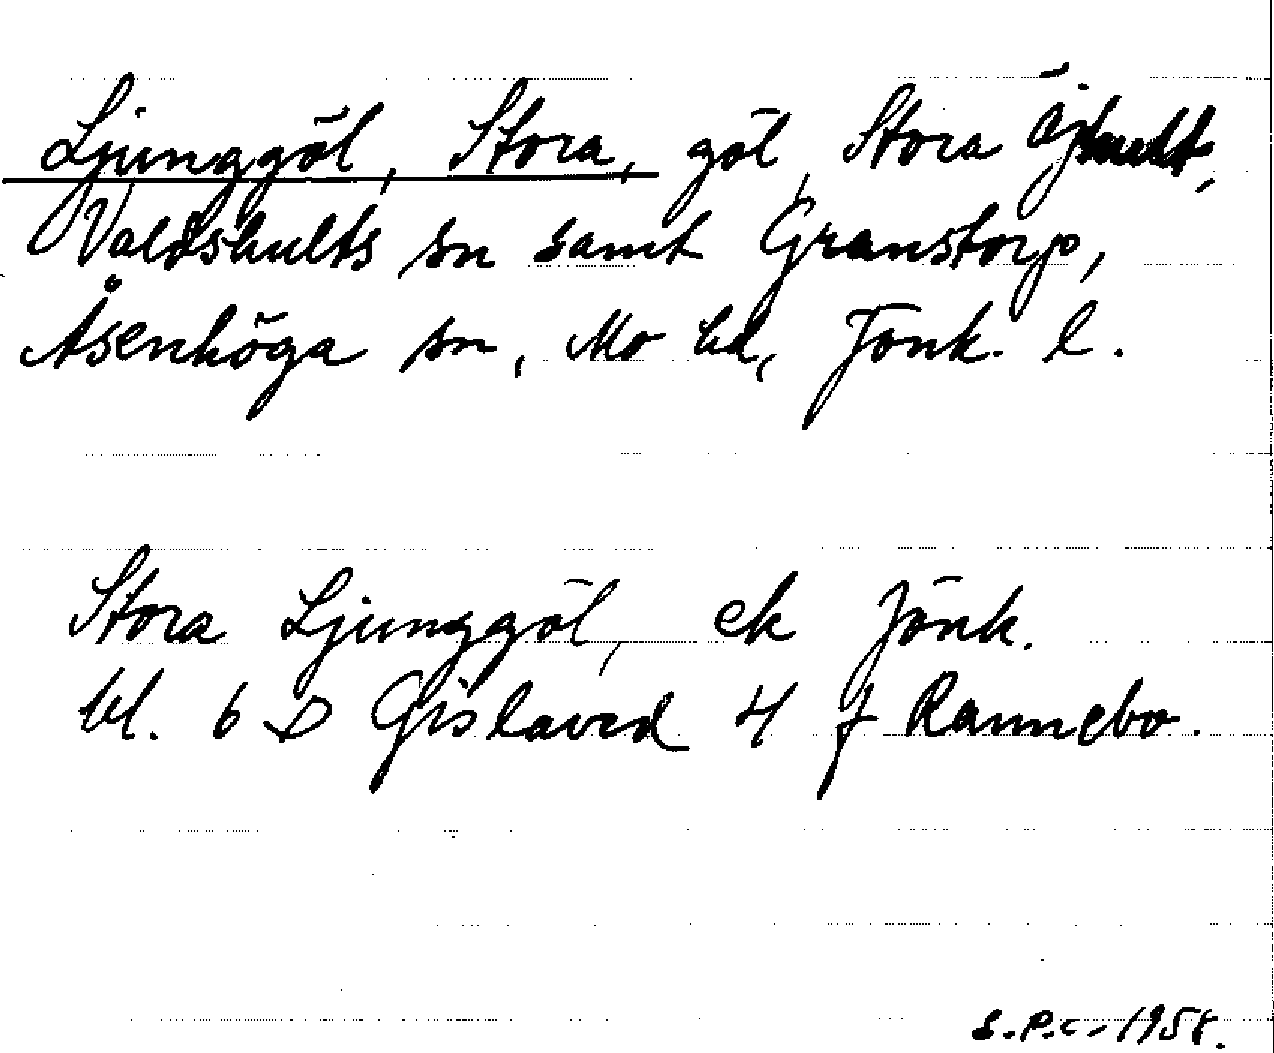 Ljunggöl, Stora, göl, Stora
Valdshults sn samt Granstorp,
Åsenhöga sn, Mo hd, Jönk. l.
Stora Ljunggöl, ek Jönk.
bl. 6 D Gislaved 4 f Rannebo.
S.P.C. 1958.